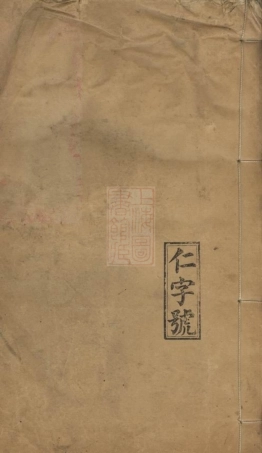 仁字號